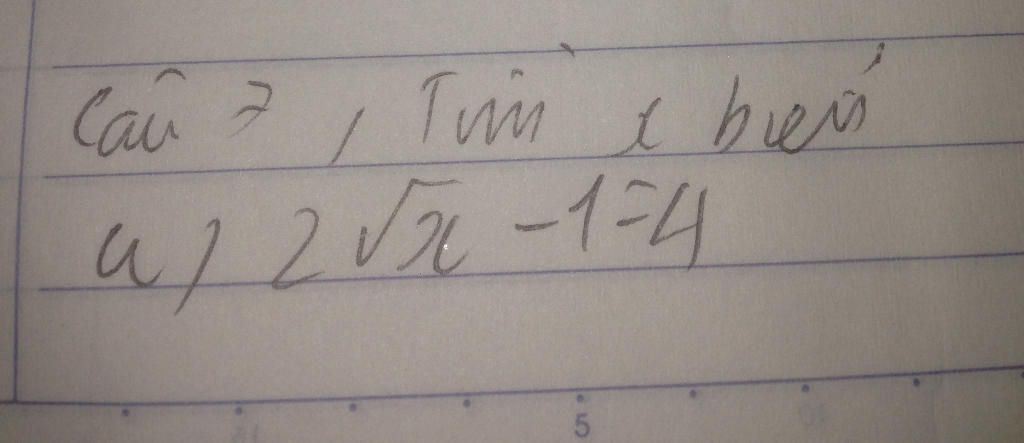 Câu 7, Tìm x biến
a, 2√x - 1 = 4
5